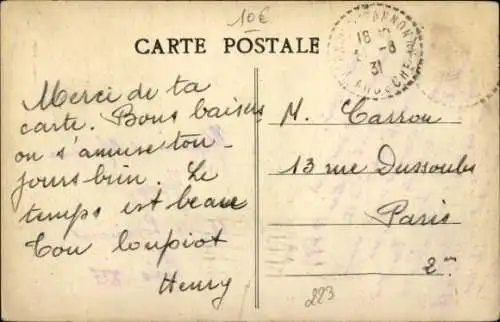 10€
CARTE POSTALE
18
8
31
Merci de ta
carte. Bons baisers
on s'amuse tou-
jours bien. Le
temps est beau
Ton loupiot
Henry
M. Carrou
13 rue Dussoubs
Paris
2me
223